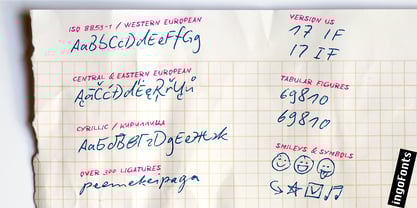 ISO 8859-1 / WESTERN EUROPEAN
AaBbCcDdEeFfGg
CENTRAL & EASTERN EUROPEAN
CYRILLIC / КИРИЛЛИЦА
АаБбВвГгДдЕеЖж
OVER 300 LIGATURES
VERSION US
17 IF
17 IF
TABULAR FIGURES
69810
69810
SMILEYS & SYMBOLS
IngoFonts